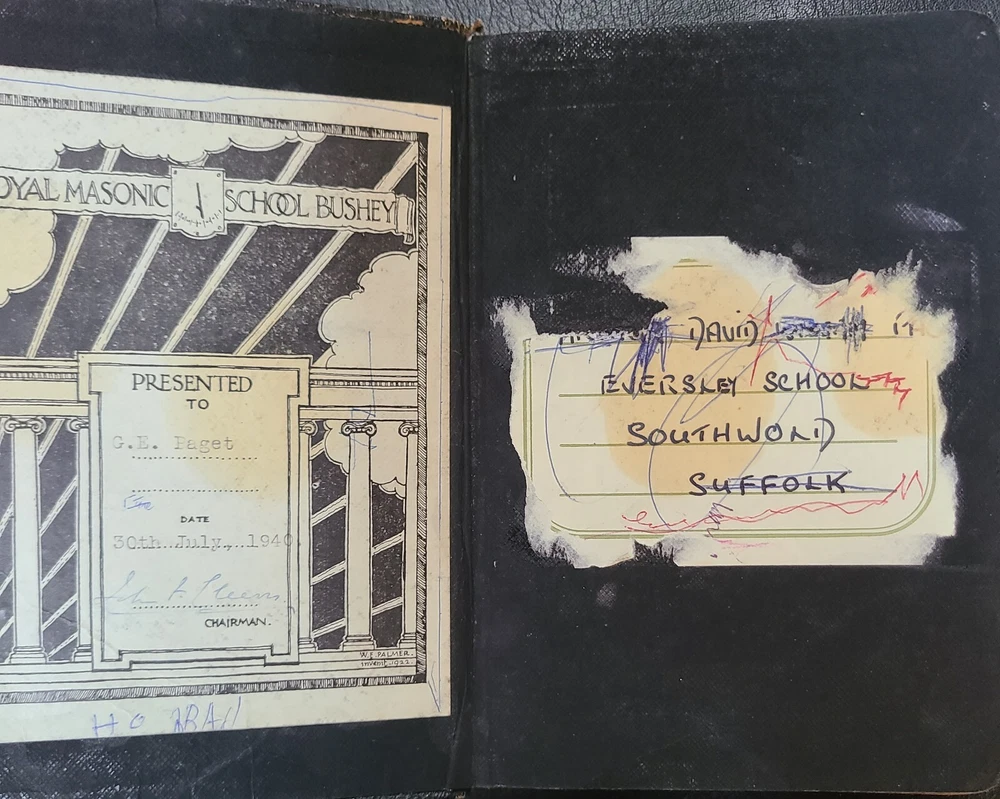 OYAL MASONIC SCHOOL BUSHEY
PRESENTED
TO
G.E. Paget
DATE
30th July, 1940
CHAIRMAN.
W.E. PALMER.
invent. 1922.
DAVID
EVERSLEY SCHOOL
SOUTHWOLD
SUFFOLK